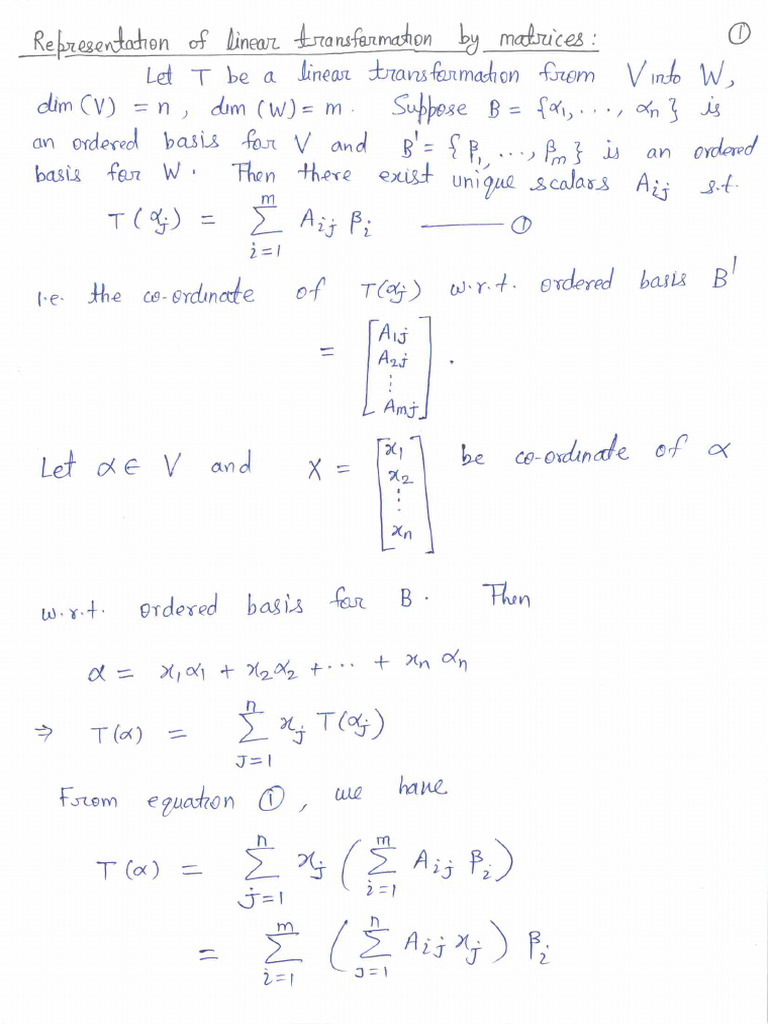 Representation of linear transformation by matrices: ①
Let T be a linear transformation from V into W,
dim (V) = n, dim (W) = m. Suppose B = {α₁, . . . , αₙ} is
an ordered basis for V and B' = {β₁, . . . , βₘ} is an ordered
basis for W. Then there exist unique scalars Aᵢⱼ s.t.
T(αⱼ) = ∑_{i=1}^{m} Aᵢⱼ βᵢ —— ①
i.e. the co-ordinate of T(αⱼ) w.r.t. ordered basis B'
= [A₁ⱼ A₂ⱼ ⋮ Aₘⱼ] .
Let α ∈ V and X = [x₁ x₂ ⋮ xₙ] be co-ordinate of α
w.r.t. ordered basis for B. Then
α = x₁α₁ + x₂α₂ + ⋯ + xₙ αₙ
⇒ T(α) = ∑_{j=1}^{n} xⱼ T(αⱼ)
From equation ①, we have
T(α) = ∑_{j=1}^{n} xⱼ (∑_{i=1}^{m} Aᵢⱼ βᵢ)
= ∑_{i=1}^{m} (∑_{j=1}^{n} Aᵢⱼ xⱼ) βᵢ